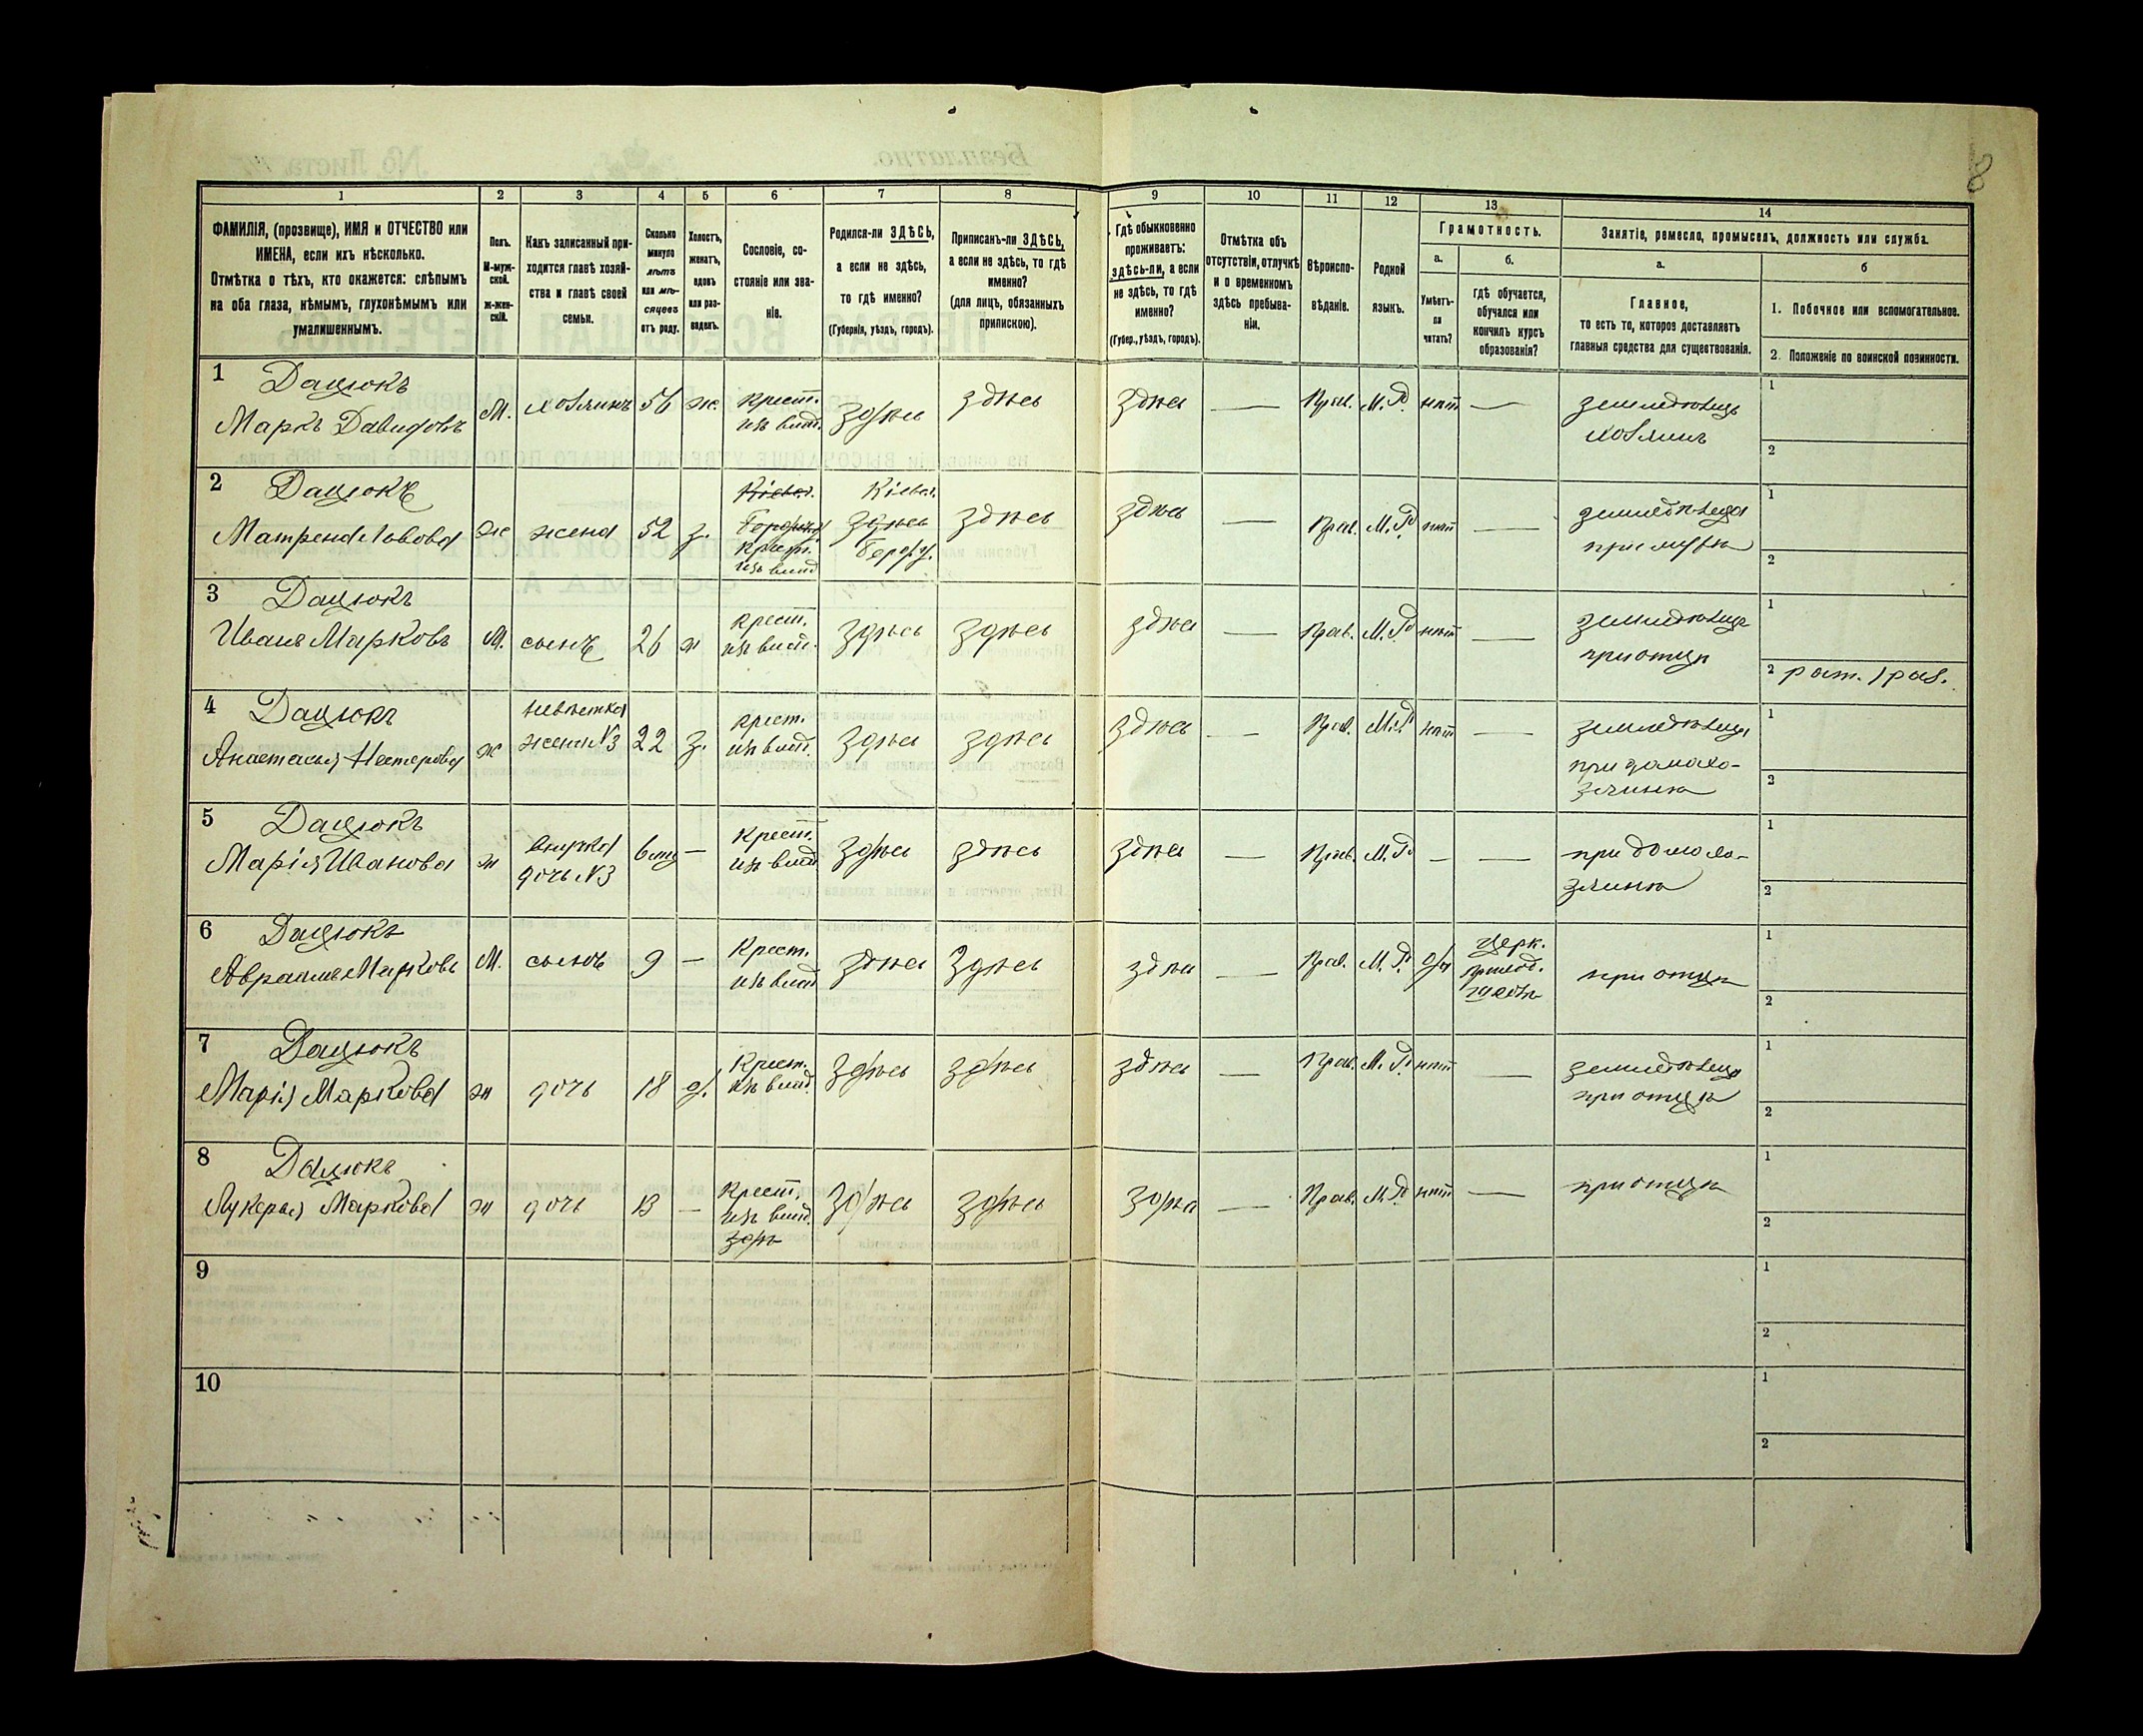 8
1 2 3 4 5 6 7 8 9 10 11 12 13 14
ФАМИЛІЯ, (прозвище), ИМЯ и ОТЧЕСТВО или
ИМЕНА, если ихъ нѣсколько.
Отмѣтка о тѣхъ, кто окажется: слѣпымъ
на оба глаза, нѣмымъ, глухонѣмымъ или
умалишеннымъ.
Полъ.
М-муж-
ской.
ж-жен-
скій.
Какъ записанный при-
ходится главѣ хозяй-
ства и главѣ своей
семьи.
Сколько
минуло
лѣтъ
или мѣ-
сяцевъ
отъ роду.
Холостъ,
женатъ,
вдовъ
или раз-
веденъ.
Сословіе, со-
стояніе или зва-
ніе.
Родился-ли ЗДѢСЬ,
а если не здѣсь,
то гдѣ именно?
(Губернія, уѣздъ, городъ).
Приписанъ-ли ЗДѢСЬ,
а если не здѣсь, то гдѣ
именно?
(для лицъ, обязанныхъ
припискою).
Гдѣ обыкновенно
проживаетъ:
здѣсь-ли, а если
не здѣсь, то гдѣ
именно?
(Губер., уѣздъ, городъ).
Отмѣтка объ
отсутствіи, отлучкѣ
и о временномъ
здѣсь пребыва-
ніи.
Вѣроиспо-
вѣданіе.
Родной
языкъ.
Грамотность.
а.
Умѣетъ-
ли
читать?
б.
Гдѣ обучается,
обучался или
кончилъ курсъ
образованія?
Занятіе, ремесло, промыселъ, должность или служба.
а.
Главное,
то есть то, которое доставляетъ
главныя средства для существованія.
б
1. Побочное или вспомогательное.
2. Положеніе по воинской повинности.
1 Дацюкъ
Маркъ Давидовъ М. хозяинъ 56 ж. крест. изъ влад. здѣсь здѣсь здѣсь — Прав. М.Р. нѣт — земледѣлецъ хозяинъ
1
2
2 Дацюкъ
Матрена Львова ж жена 52 з. крест. изъ влад. Кіевск. здѣсь здѣсь здѣсь — Прав. М.Р. нѣт — земледѣлица при мужѣ
1
2
3 Дацюкъ
Иванъ Марковъ М. сынъ 26 ж крест. изъ влад. здѣсь здѣсь здѣсь — Прав. М.Р. нѣт — земледѣлецъ при отцѣ
1
2 рат. 1 раз.
4 Дацюкъ
Анастасья Нестерова ж невѣстка жена №3 22 з. крест. изъ влад. здѣсь здѣсь здѣсь — Прав. М.Р. нѣт — земледѣлица при домохо-
зяинѣ
1
2
5 Дацюкъ
Марія Иванова ж внучка дочь №3 6 мц — крест. изъ влад здѣсь здѣсь здѣсь — Прав. М.Р. — — при домохо-
зяинѣ
1
2
6 Дацюкъ
Авраамъ Марковъ М. сынъ 9 — Крест. изъ влад здѣсь здѣсь здѣсь — Прав. М.Р. да Церк. приход. школѣ при отцѣ
1
2
7 Дацюкъ
Марія Маркова ж дочь 18 д. Крест. изъ влад. здѣсь здѣсь здѣсь — Прав. М.Р. нѣт — земледѣлица при отцѣ
1
2
8 Дацюкъ
Лукерья Маркова ж дочь 13 — Крест. изъ влад. здѣсь здѣсь здѣсь — Прав. М.Р. нѣт — при отцѣ
1
2
9
1
2
10
1
2